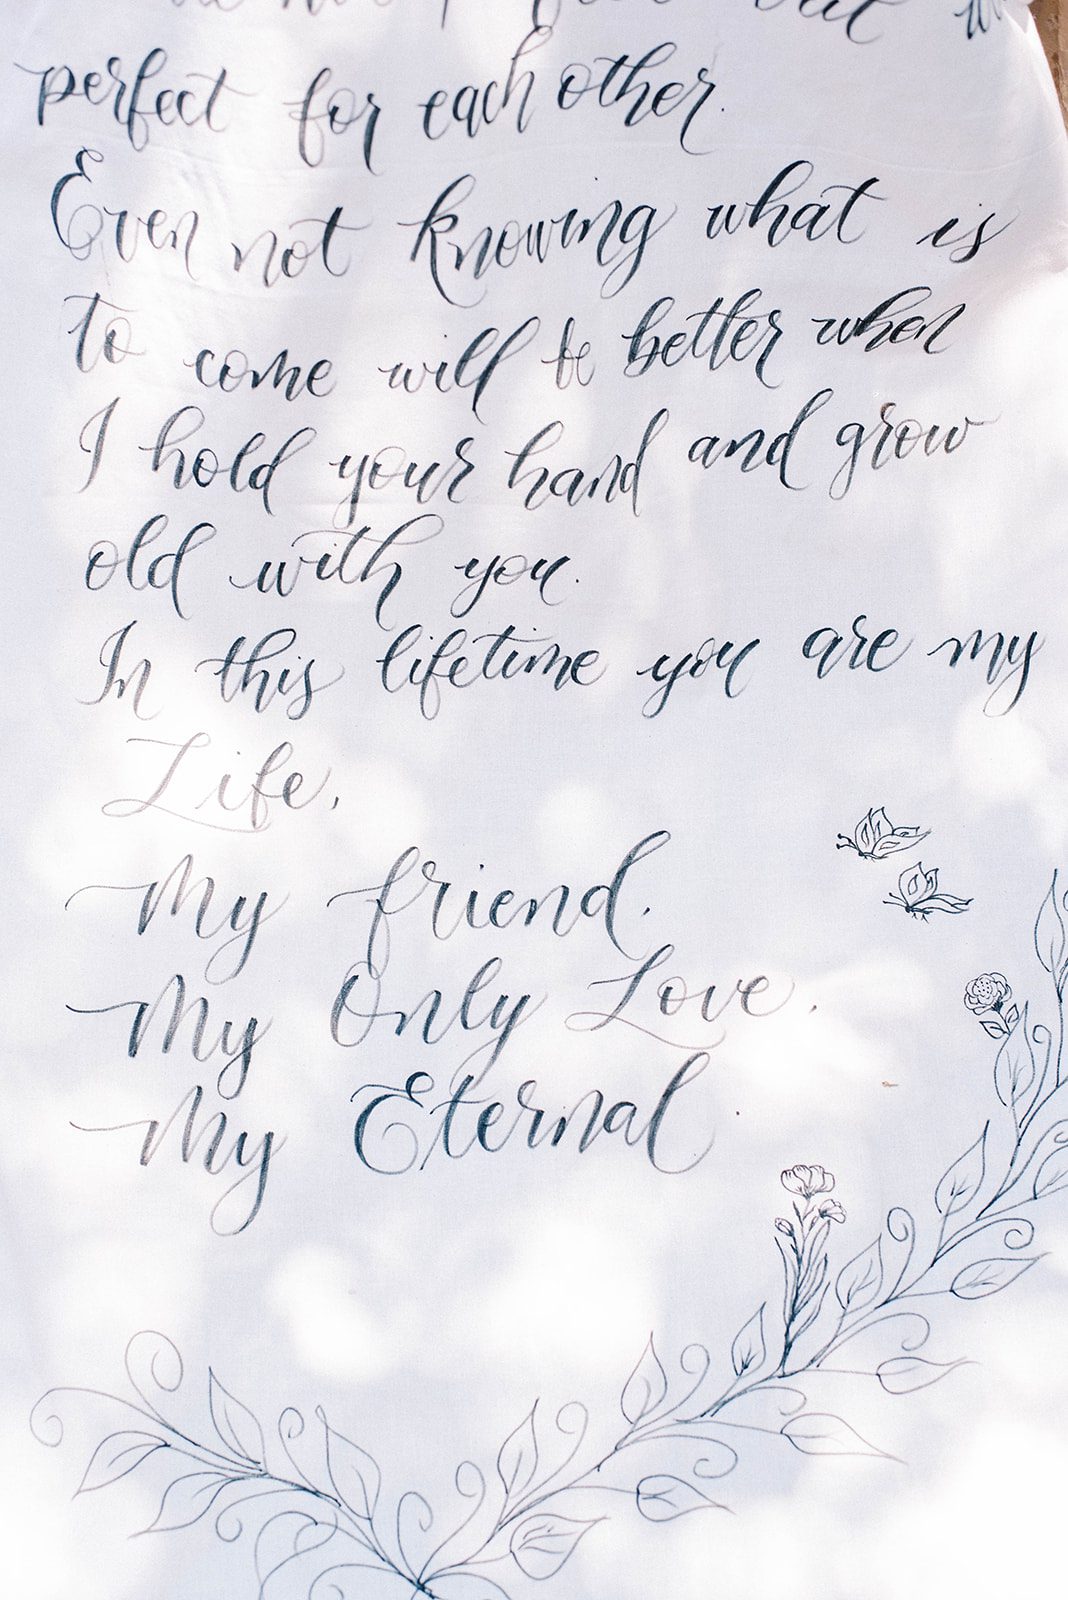 perfect for each other.
Even not knowing what is
to come will be better when
I hold your hand and grow
old with you.
In this lifetime you are my
Life.
My friend.
My Only Love.
My Eternal.